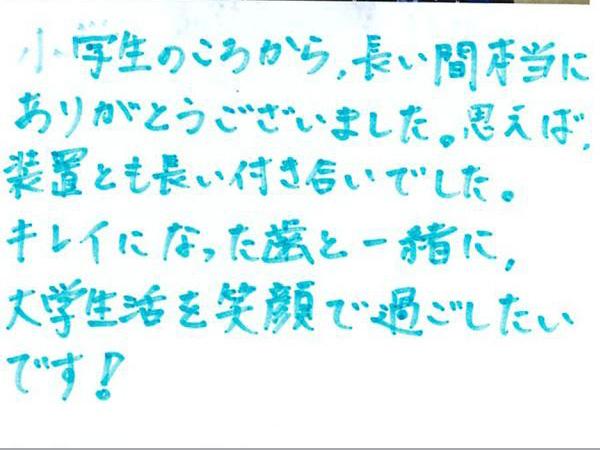 小学生のころから,長い間本当に
ありがとうございました。思えば,
装置とも長い付き合いでした。
キレイになった歯と一緒に,
大学生活を笑顔で過ごしたい
です!